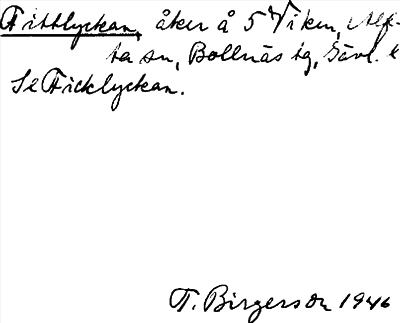 Fittlyckan, åker å 5 Viken, Alf-
ta sn, Bollnäs tg, Gävl. l
Se Ficklyckan.
T. Birgerson 1946